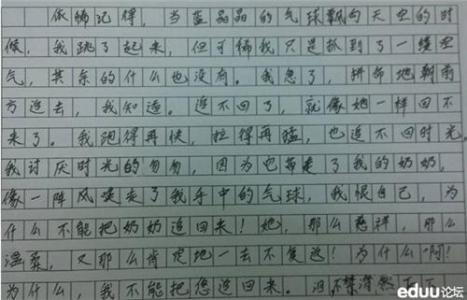 依稀记得，当蓝晶晶的气球飘向天空的时
候，我跳了起来，但可惜我只是抓到了一缕空
气，其余的什么也没有。我急了，拼命地朝前
方追去，我知道。追不回了，就像她一样回不
来了。我跑得再快，拉得再猛，也追不回时光。
我讨厌时光的匆匆，因为它带走了我的奶奶，
像一阵风卷走了我手中的气球，我恨自己，为
什么不能把奶奶追回来！她，那么慈祥，那么
温柔，又那么肯定地一去不复返！为什么啊！
为什么，我不能把您追回来。泪不禁潸然而下
eduu论坛